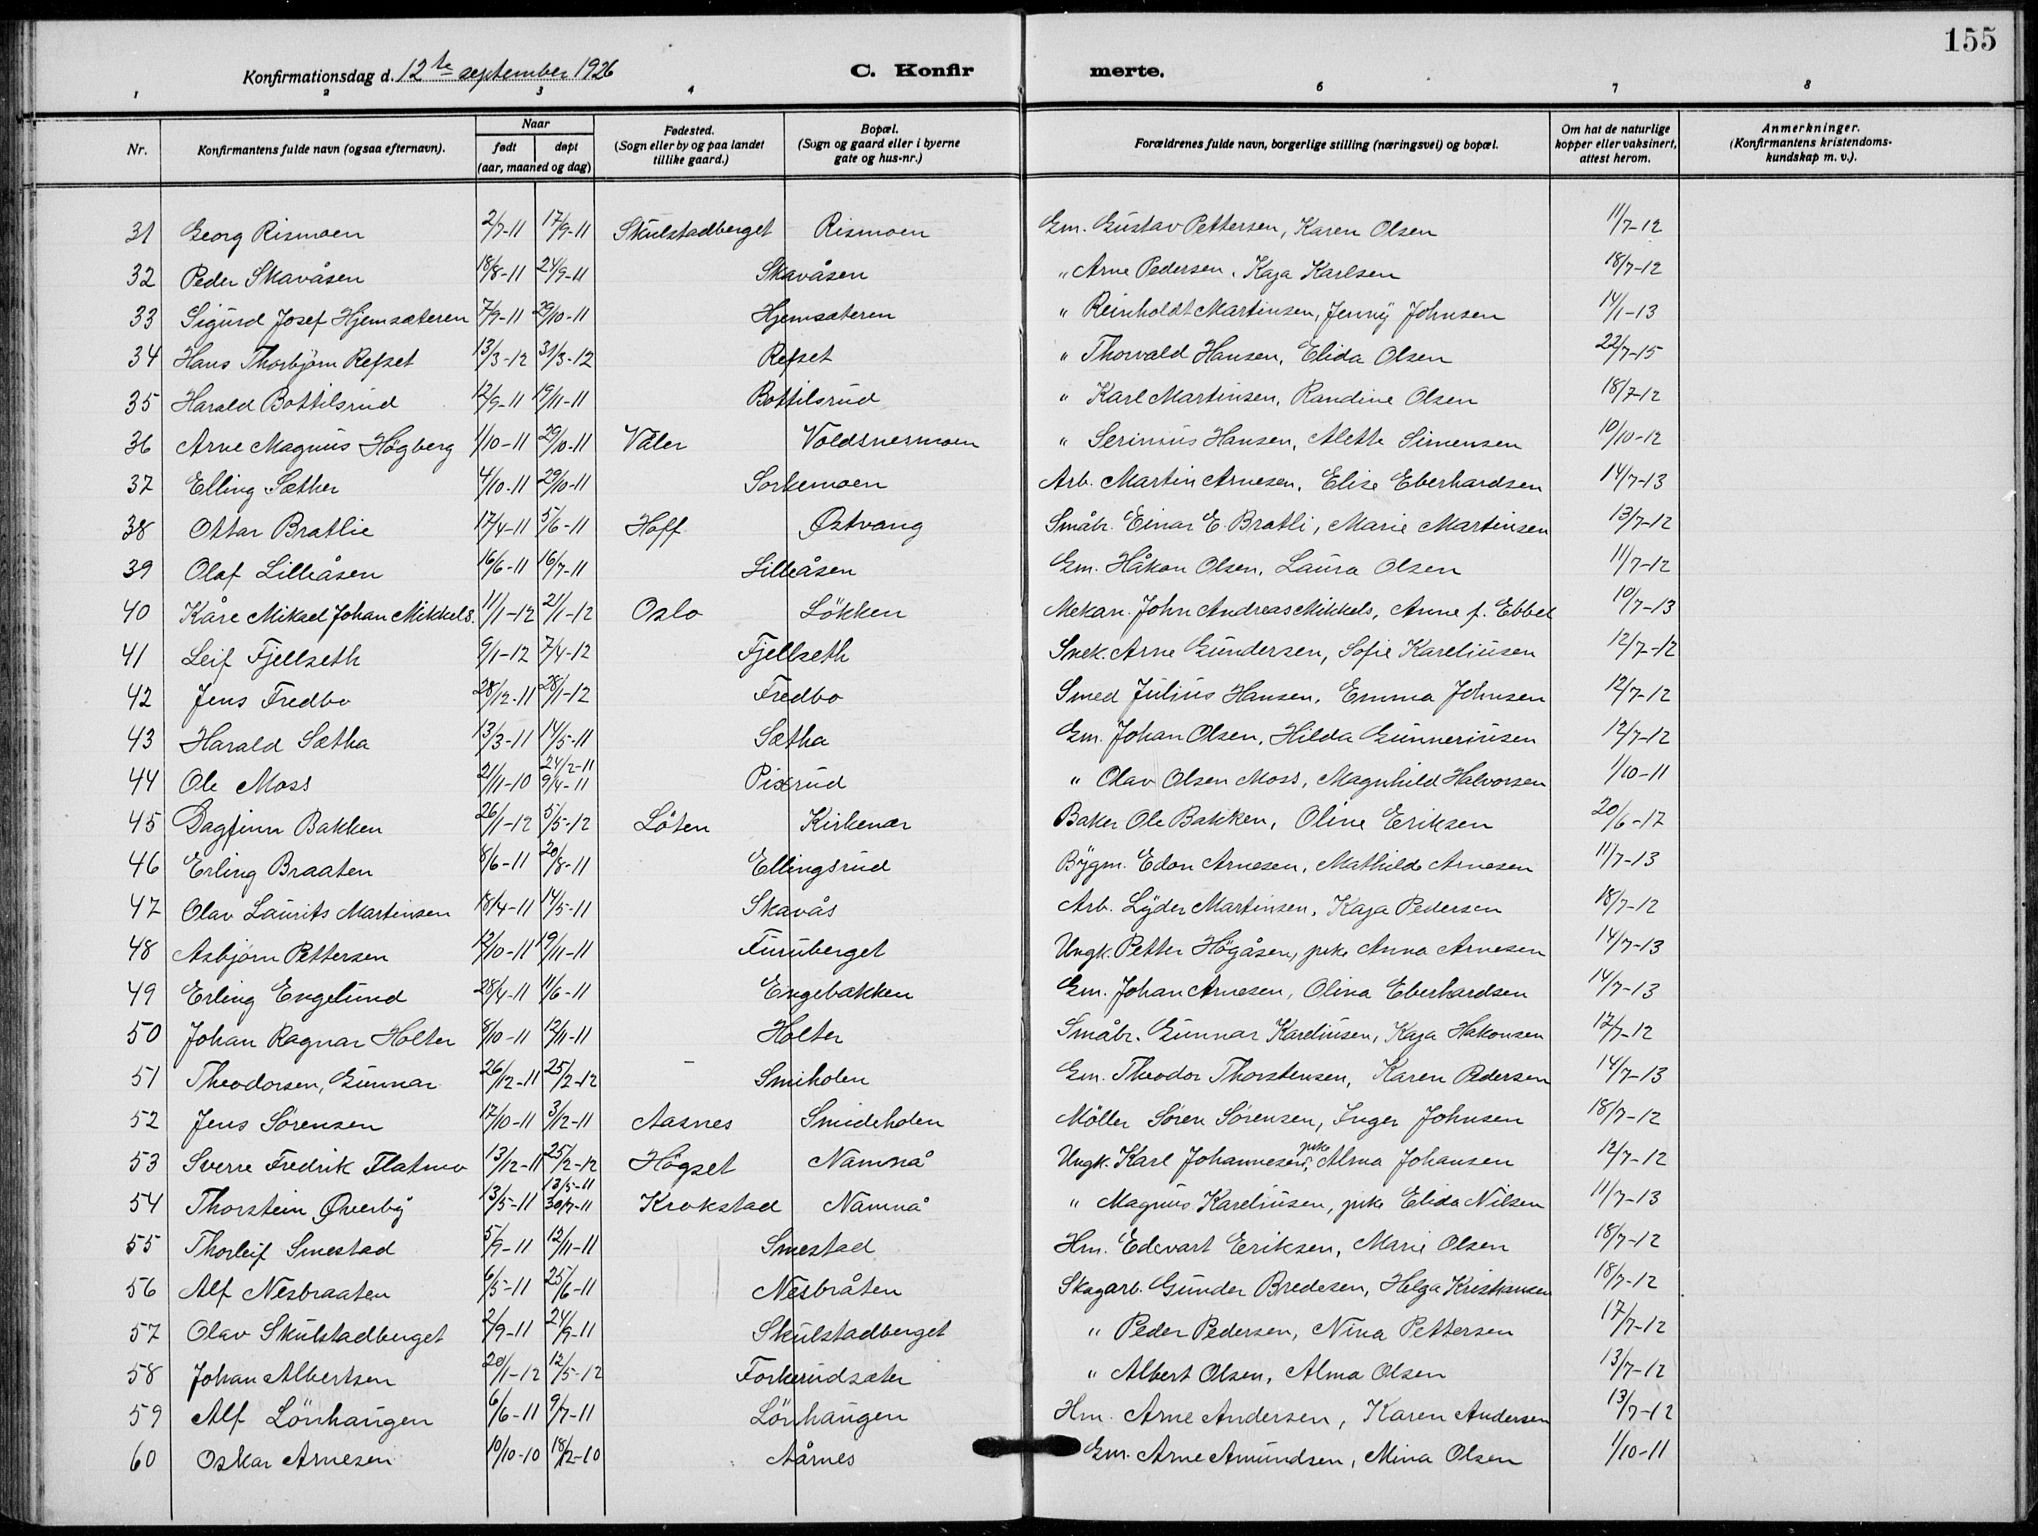 155
Konfirmationsdag d. 12te september 1926 C. Konfir merte.
1 2 3 4 6 7 8
Nr. Konfirmantens fulde navn (ogsaa efternavn). Naar født døpt (aar, maaned og dag) Fødested. (Sogn eller by og paa landet tillike gaard.) Bopæl. (Sogn og gaard eller i byerne gate og hus-nr.) Forældrenes fulde navn, borgerlige stilling (næringsvei) og bopæl. Om hat de naturlige kopper eller vaksinert, attest herom. Anmerkninger. (Konfirmantens kristendoms-kundskap m. v.).
31 Georg Rismoen 2/7-11 17/9-11 Skulstadberget Rismoen Gm. Gustav Pettersen, Karen Olsen 11/7-12
32 Peder Skavåsen 18/8-11 24/9-11 Skavåsen " Arne Pedersen, Kaja Karlsen 18/7-12
33 Sigurd Josef Hjemsæteren 7/9-11 29/10-11 Hjemsæteren " Reinholdt Martinsen, Jenny Johnsen 14/1-13
34 Hans Thorbjørn Refset 13/3-12 31/3-12 Refset " Thorvald Hansen, Elida Olsen 22/7-15
35 Harald Bottilsrud 12/9-11 19/11-11 Bottilsrud " Karl Martinsen, Randine Olsen 18/7-12
36 Arne Magnus Högberg 1/10-11 29/10-11 Våler Voldsnesmoen " Serinius Hansen, Alette Simensen 10/10-12
37 Elling Sæther 4/10-11 29/10-11 Sorkemoen Arb. Martin Arnesen, Elise Eberhardsen 14/7-13
38 Ottar Bratlie 17/4-11 5/6-11 Hoff Østvang Småbr. Einar E. Bratli, Marie Martinsen 13/7-12
39 Olaf Lilleåsen 16/6-11 16/7-11 Lilleåsen Gm. Håkon Olsen, Laura Olsen 11/7-12
40 Kåre Mikael Johan Mikkels. 11/1-12 21/1-12 Oslo Lökken Mekan. John Andreas Mikkels, Anne f. Ebbel 10/7-13
41 Leif Fjellseth 9/1-12 7/4-12 Fjellseth Snek. Arne Gundersen, Sofie Kareliusen 12/7-12
42 Jens Fredbo 28/12-11 28/1-12 Fredbo Smed Julius Hansen, Emma Johnsen 12/7-12
43 Harald Sætha 13/3-11 14/5-11 Sætha Gm. Johan Olsen, Hilda Gunneriusen 12/7-12
44 Ole Moss 21/11-10 24/2-11 9/4-11 Pixrud " Olav Olsen Moss, Magnhild Halvorsen 1/10-11
45 Dagfinn Bakken 26/1-12 5/5-12 Löten Kirkenær Baker Ole Bakken, Oline Eriksen 20/6-17
46 Erling Braaten 8/6-11 20/8-11 Ellingsrud Bygm. Edon Arnesen, Mathilde Arnesen 11/7-13
47 Olav Laurits Martinsen 18/4-11 14/5-11 Skavås Arb. Lyder Martinsen, Kaja Pedersen 18/7-12
48 Asbjørn Pettersen 12/10-11 19/11-11 Furuberget Ungk. Petter Högåsen, pike Anna Arnesen 14/7-13
49 Erling Engelund 28/4-11 11/6-11 Engebakken Gm. Johan Arnesen, Olina Eberhardsen 14/7-13
50 Johan Ragnar Holter 8/10-11 12/11-11 Holter Småbr. Gunnar Kareliusen, Kaja Hakonsen 12/7-12
51 Theodorsen, Gunnar 26/12-11 25/2-12 - Smiholen Gm. Theodor Thorstensen, Karen Pedersen 14/7-13
52 Jens Sørensen 17/10-11 3/12-11 Aasnes Smideholen Möller Søren Sørensen, Inger Johnsen 18/7-12
53 Sverre Fredrik Flatmo 13/12-11 25/2-12 Högset Namnå Ungk. Karl Johannesen, pike Alma Johansen 12/7-12
54 Thorstein Øverby 13/5-11 13/5-11 30/7-11 Krokstad Namnå " Magnus Kareliusen, pike Elida Nilsen 11/7-13
55 Thorleif Smestad 5/9-11 12/11-11 Smestad Hm. Edevart Eriksen, Marie Olsen 18/7-12
56 Alf Nesbraaten 6/5-11 25/6-11 Nesbråten Skogarb. Gunder Bredesen, Helga Kristiansen 18/7-12
57 Olav Skulstadberget 2/9-11 24/9-11 Skulstadberget " Peder Pedersen, Nina Pettersen 17/7-12
58 Johan Albertsen 20/1-12 12/5-12 Forkerudsæter " Albert Olsen, Alma Olsen 13/7-12
59 Alf Lönhaugen 6/6-11 9/7-11 Lönhaugen Hm. Arne Andersen, Karen Andersen 13/7-12
60 Oskar Arnesen 10/10-10 18/12-10 Aårnes Gm. Arne Amundsen, Mina Olsen 1/10-11